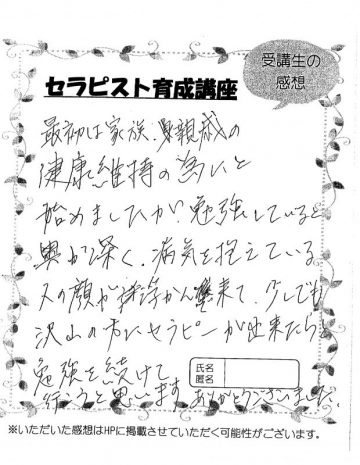 受講生の
感想
セラピスト育成講座
最初は家族、親戚の
健康維持の為にと
始めましたが勉強していると
奥が深く、病気を抱えている
人の顔が浮かんで来て、少しでも
沢山の方にセラピーが出来たらと
勉強を続けて
行こうと思います。ありがとうございました。
氏名
匿名
※いただいた感想はHPに掲載させていただく可能性がございます。